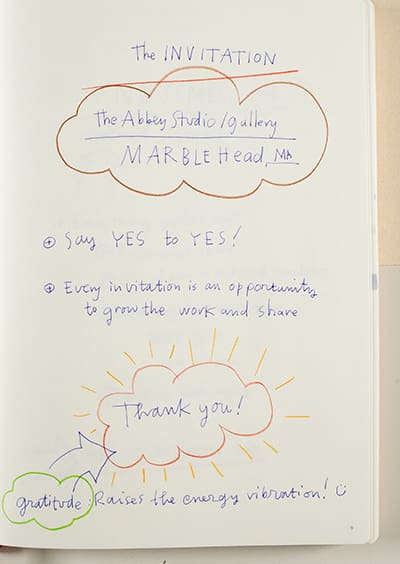 The INVITATION
The Abbey Studio/gallery
MARBLEHead, MA
⊕ Say YES to YES!
⊕ Every invitation is an opportunity
to grow the work and share
Thank you!
gratitude: Raises the energy vibration! ☺